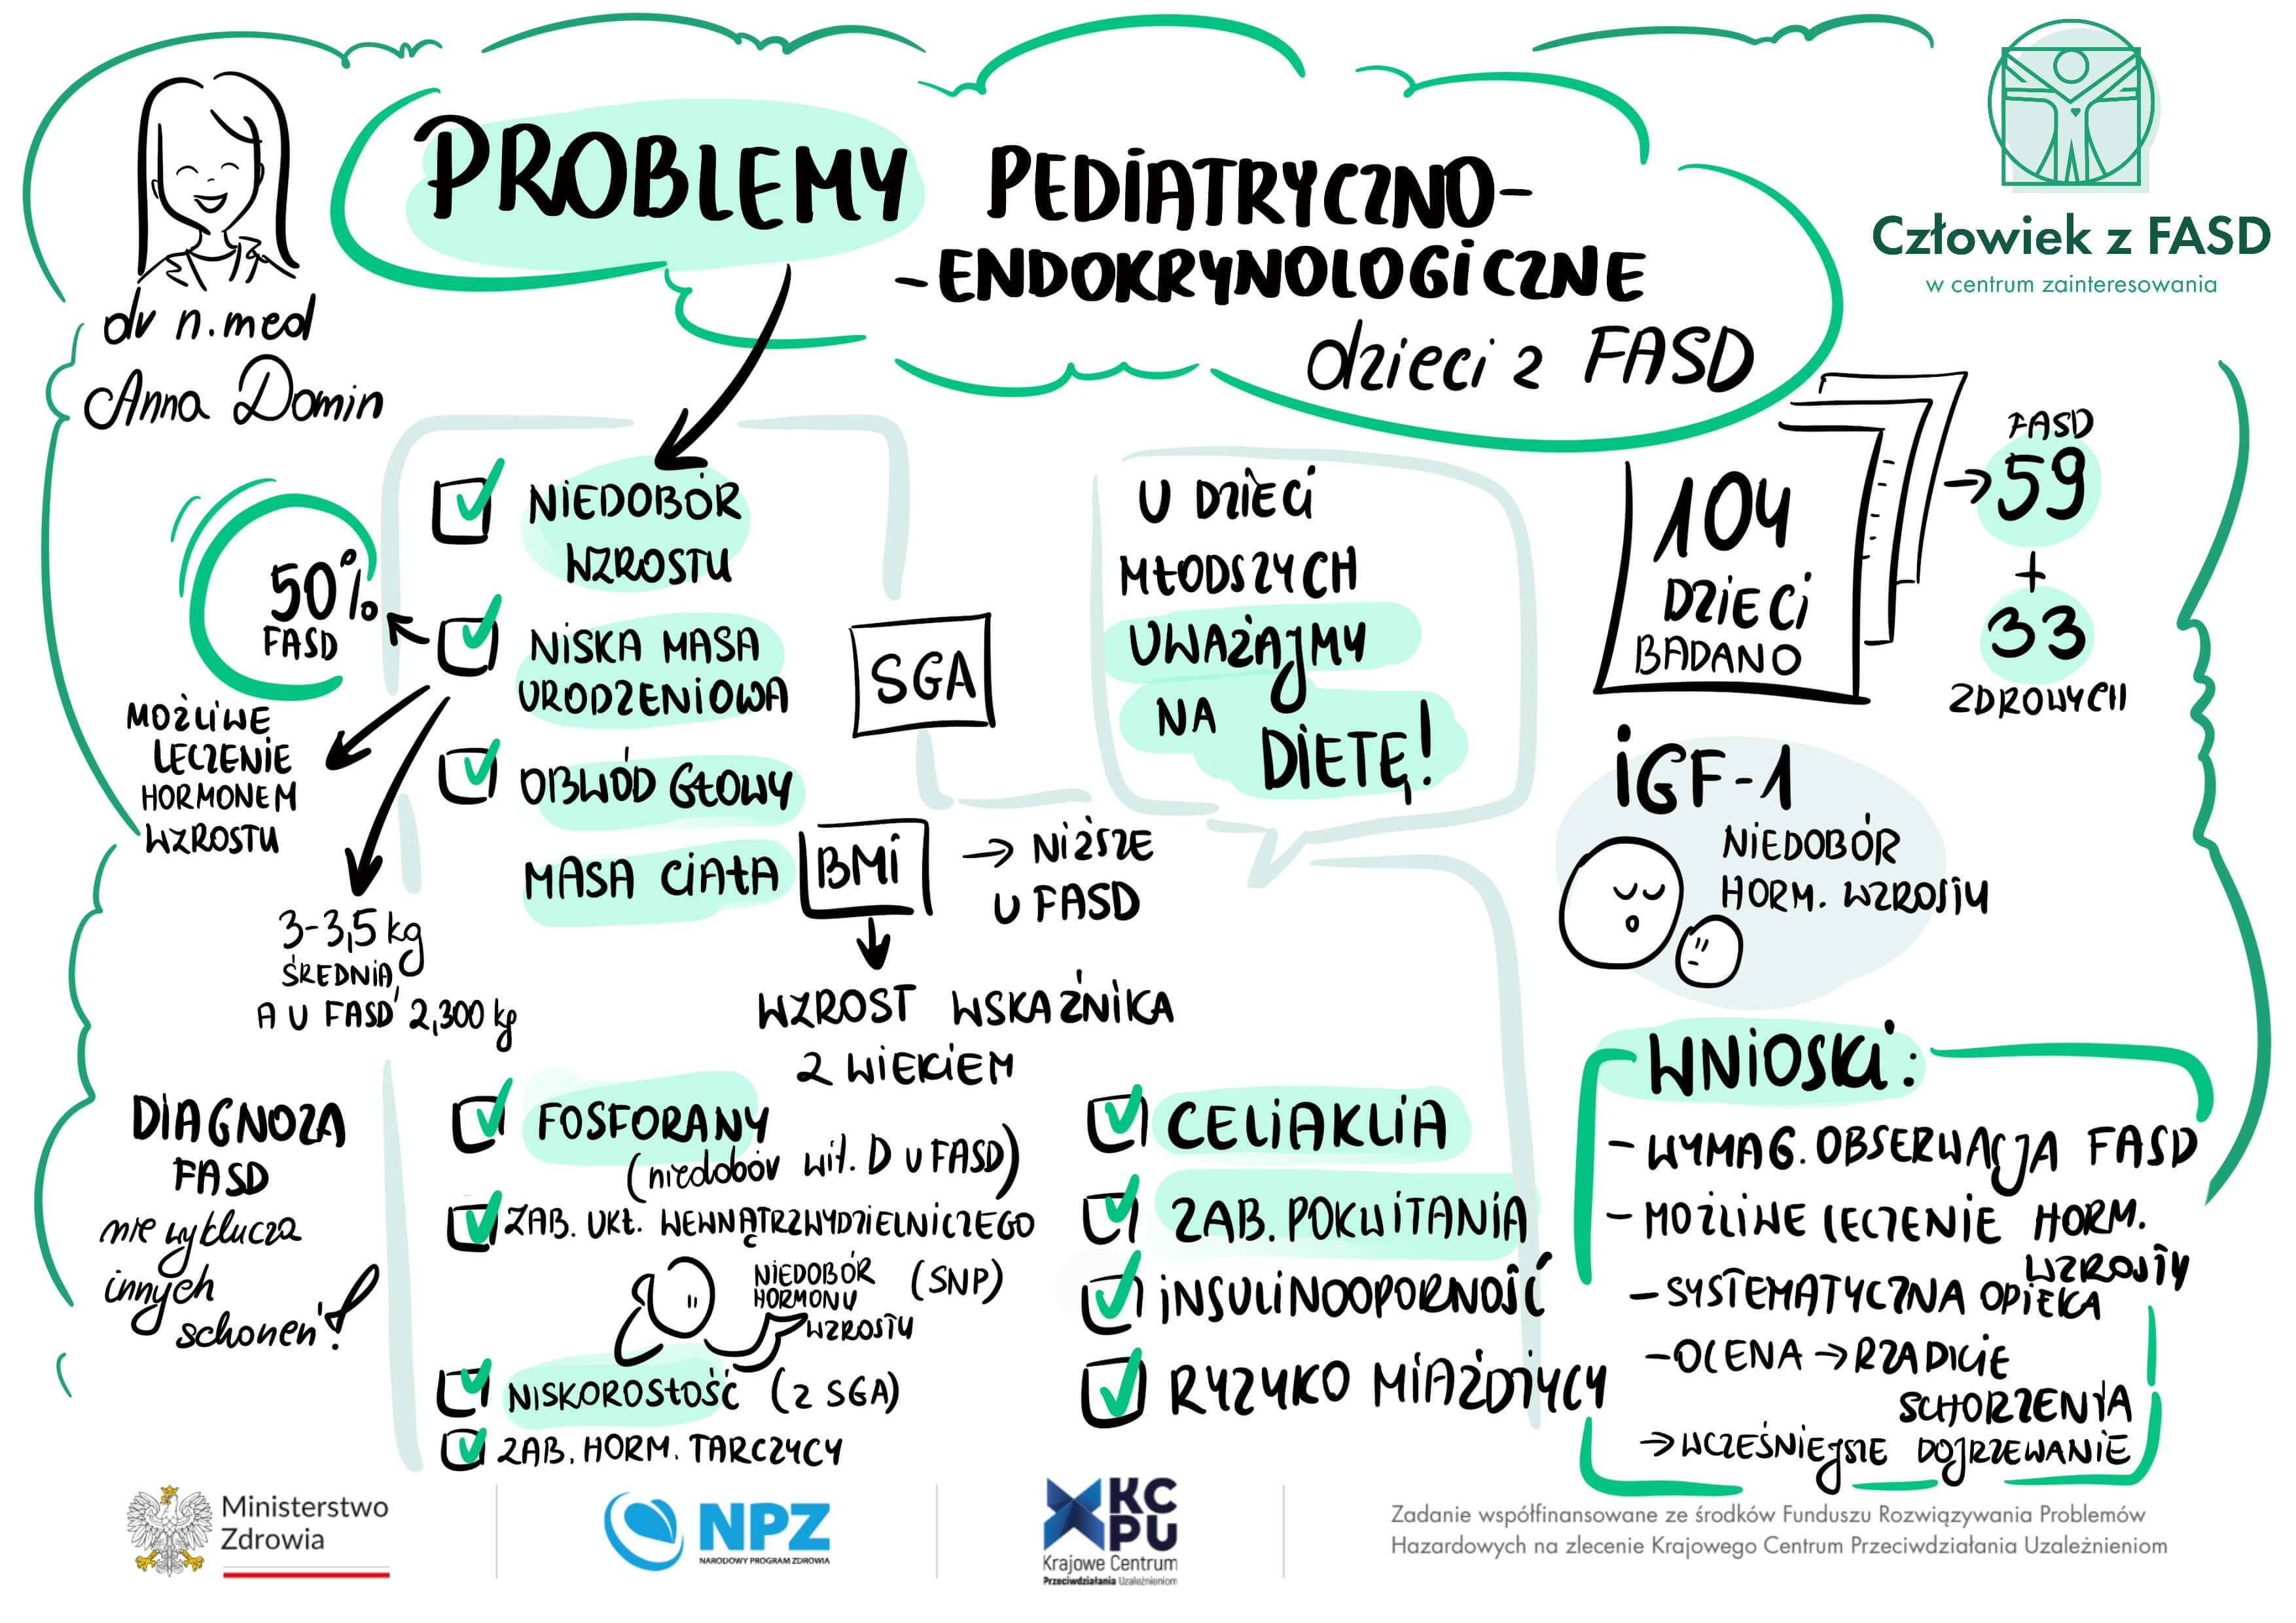 PROBLEMY PEDIATRYCZNO-
-ENDOKRYNOLOGICZNE
dzieci z FASD
dr n.med
Anna Domin
Człowiek z FASD
w centrum zainteresowania
NIEDOBÓR
WZROSTU
50%
FASD
NISKA MASA
URODZENIOWA
MOŻLIWE
LECZENIE
HORMONEM
WZROSTU
3-3,5 kg
ŚREDNIA,
A U FASD 2,300 kg
OBWÓD GŁOWY
MASA CIAŁA
SGA
BMI
→ NIŻSZE
U FASD
WZROST WSKAŹNIKA
Z WIEKIEM
U DZIECI
MŁODSZYCH
UWAŻAJMY
NA
DIETĘ!
104
DZIECI
BADANO
FASD
→ 59
+
33
ZDROWYCH
IGF-1
NIEDOBÓR
HORM. WZROSTU
DIAGNOZA
FASD
nie wyklucza
innych
schoneń!
FOSFORANY
(niedobór wit. D u FASD)
ZAB. UKŁ. WEWNĄTRZWYDZIELNICZEGO
NIEDOBÓR
HORMONU
WZROSTU
(SNP)
NISKOROSŁOŚĆ (z SGA)
ZAB. HORM. TARCZYCY
CELIAKLIA
ZAB. POKWITANIA
INSULINOOPORNOŚĆ
RYZYKO MIAŻDŻYCY
WNIOSKI:
- WYMAG. OBSERWACJA FASD
- MOŻLIWE LECZENIE HORM.
WZROSTU
- SYSTEMATYCZNA OPIEKA
- OCENA → RZADKIE
SCHORZENIA
→ WCZEŚNIEJSZE DOJRZEWANIE
Ministerstwo
Zdrowia
NPZ
NARODOWY PROGRAM ZDROWIA
KC
PU
Krajowe Centrum
Przeciwdziałania Uzależnieniom
Zadanie współfinansowane ze środków Funduszu Rozwiązywania Problemów
Hazardowych na zlecenie Krajowego Centrum Przeciwdziałania Uzależnieniom